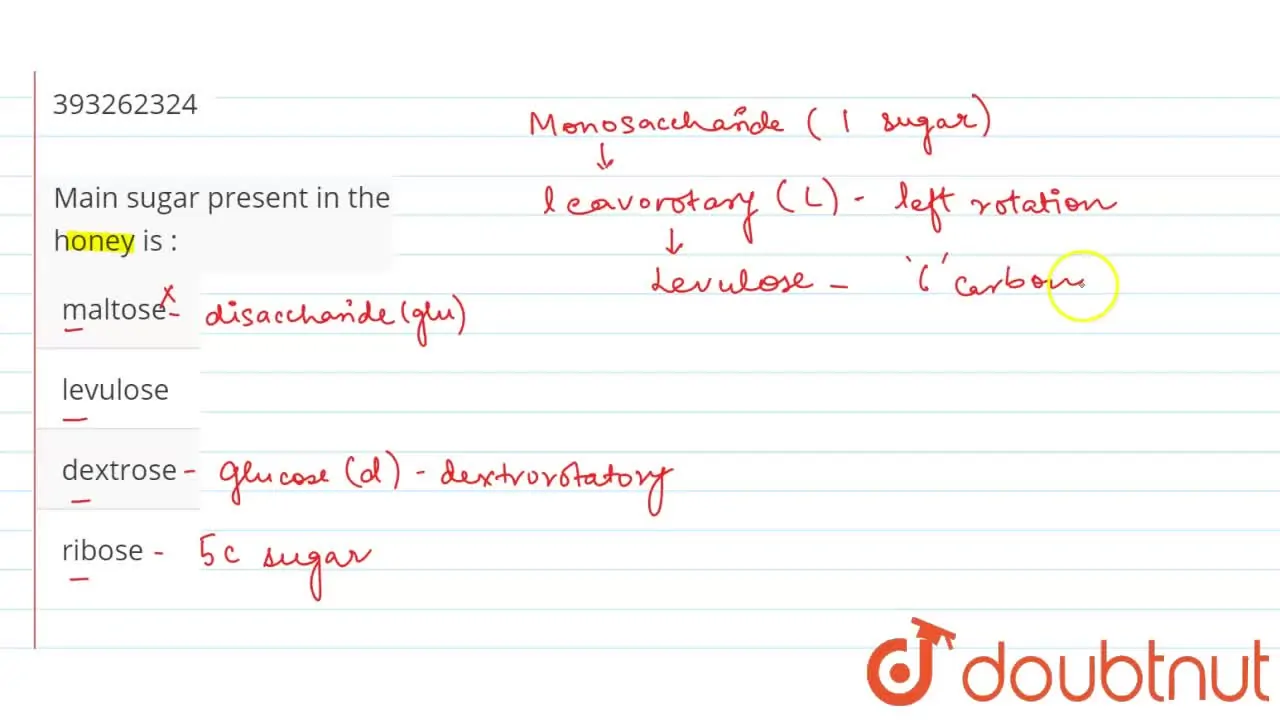 393262324
Main sugar present in the
honey is :
maltose - disaccharide (glu)
levulose
dextrose - glucose (d) - dextrorotatory
ribose - 5c sugar
Monosaccharide ( 1 sugar)
leavorotary (L) - left rotation
Levulose - '6' carbon
doubtnut